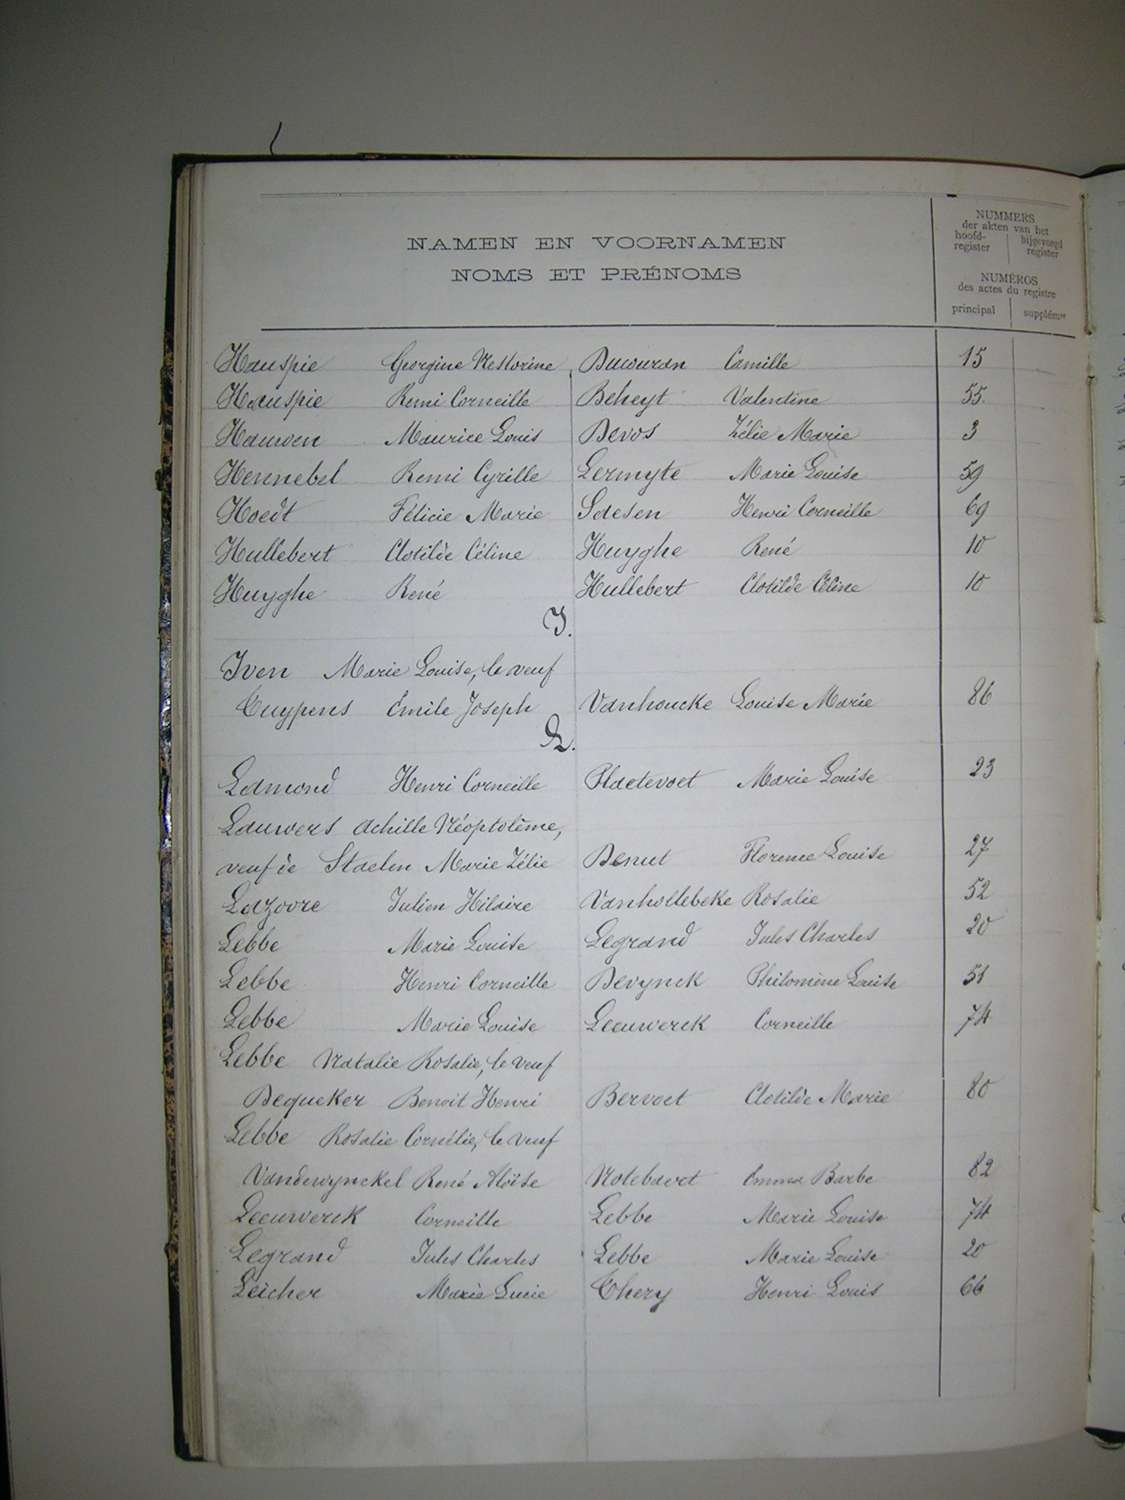 NUMMERS
der akten van het
hoofd-register bijgevoegd register
NAMEN EN VOORNAMEN
NOMS ET PRÉNOMS
NUMÉROS
des actes du registre
principal supplém.re
Hauspie Georgine Nestorine Ducouran Camille 15
Hauspie Remi Corneille Beheyt Valentine 55
Hauwen Maurice Louis Devos Zélie Marie 3
Hennebel Remi Cyrille Lermyte Marie Louise 59
Hoedt Félicie Marie Saesen Henri Corneille 69
Hullebert Clotilde Céline Huyghe René 10
Huyghe René Hullebert Clotilde Céline 10
I.
Iven Marie Louise, le veuf
Cuypens Émile Joseph Vanhoucke Louise Marie 86
L.
Lamond Henri Corneille Plaetevoet Marie Louise 23
Lauwers Achille Néoptolême,
veuf de Staelen Marie Zélie Denut Florence Louise 27
Lazoore Julien Hilaire Vanhollebeke Rosalie 52
Lebbe Marie Louise Legrand Jules Charles 20
Lebbe Henri Corneille Devynck Philomène Louise 51
Lebbe Marie Louise Leeuwerck Corneille 74
Lebbe Natalie Rosalie, le veuf
Dequeker Benoit Henri Bervoet Clotilde Marie 80
Lebbe Rosalie Cornélie, le veuf
Vandewynckel René Aloïse Notebaert Emma Barbe 82
Leeuwerck Corneille Lebbe Marie Louise 74
Legrand Jules Charles Lebbe Marie Louise 20
Leicher Marie Lucie Thery Henri Louis 66